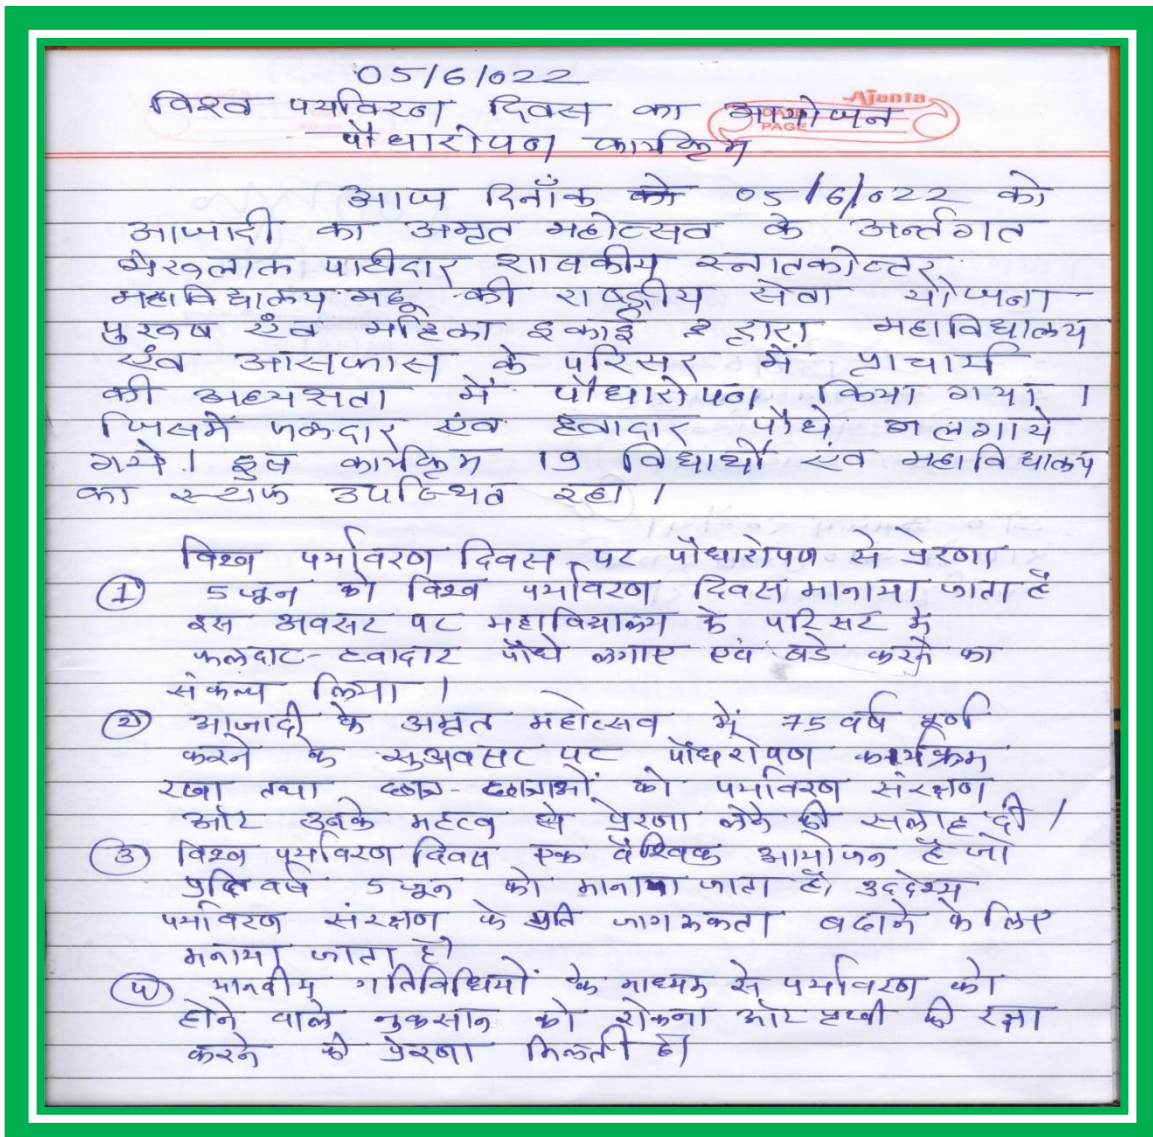 05/6/022
Ajanta
विश्व पर्यावरण दिवस का आयोजन
PAGE
पौधारोपण कार्यक्रम
आज दिनाँक को 05/6/022 को
आजादी का अमृत महोत्सव के अर्न्तगत
भेरूलाल पाटीदार शासकीय स्नातकोत्तर
महाविधालय महू की राष्ट्रीय सेवा योजना
पुरूष एंव महिला इकाई द्वारा महाविधालय
एंव आसपास के परिसर में प्राचार्य
की अध्यक्षता में पौधारोपण किया गया ।
जिसमें फलदार एंव हवादार पौधे लगाये
गये । इस कार्यक्रम 19 विधार्थी एंव महाविधालय
का स्टाफ उपस्थित रहा ।
विश्व पर्यावरण दिवस पर पौधारोपण से प्रेरणा
① 5 जून को विश्व पर्यावरण दिवस मानाया जाता है
इस अवसर पर महाविद्यालय के परिसर में
फलदार - हवादार पौधे लगाए एवं बडे करने का
संकल्प लिया ।
② आजादी के अमृत महोत्सव में 75 वर्ष पूर्ण
करने के सुअवसर पर पौधरोपण कार्यक्रम
रखा तथा छात्र - छात्राओं को पर्यावरण संरक्षण
और उनके महत्व से प्रेरणा लेने की सलाह दी ।
③ विश्व पर्यावरण दिवस एक वैश्विक आयोजन है जो
प्रति वर्ष 5 जून को मानाया जाता है। उददेश्य
पर्यावरण संरक्षण के प्रति जागरूकता बढाने के लिए
मनाया जाता है।
④ मानवीय गतिविधियों के माध्यम से पर्यावरण को
होने वाले नुकसान को रोकना और पृथ्वी की रक्षा
करने की प्रेरणा मिलती है।